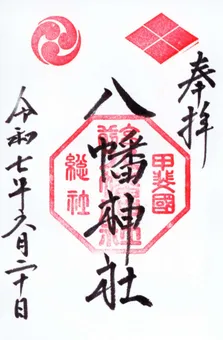 奉拝
八幡神社
甲斐國
総社
令和七年五月二十日